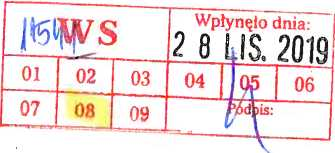 WS Wpłynęło dnia:
28 LIS. 2019
01 02 03 04 05 06
07 08 09 Podpis: